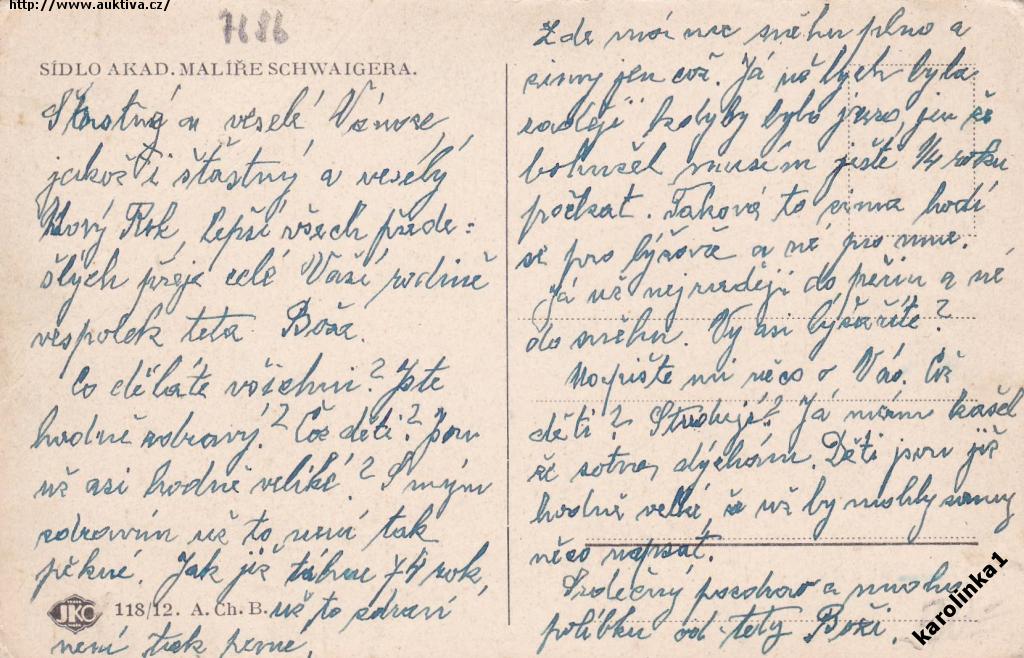 http://www.auktiva.cz/
7686
SÍDLO AKAD. MALÍŘE SCHWAIGERA.
Šťastné a veselé Vánoce,
jakož i šťastný a veselý
Nový Rok, lepší všech přede=
šlých přeje celé Vaší rodině
vespolek teta Boža.
Co děláte všichni? Jste
hodně zdravý? Což děti? Jsou
už asi hodně veliké? S mým
zdravím už to není tak
pěkné. Jak již táhne 74 rok,
už to zdraví
není tak pevné.
JKO
118/12. A. Ch. B.
Zde máme sněhu plno a
zimy jen což. Já už bych byla
raději kdyby bylo jaro, jen že
bohužel musím ještě 1/4 roku
počkat. Taková to zima hodí
se pro lyžaře a né pro mne.
Já už nejraději do peřin a né
do sněhu. Vy asi lyžaříte?
Napište mi něco o Vás. Což
děti? Studují? Já mám kašel
že sotva dýchám. Děti jsou již
hodně velké, že už by mohly samy
něco napsat.
Srdečný pozdrav a mnoho
polibků od tety Boži.
karolinka1